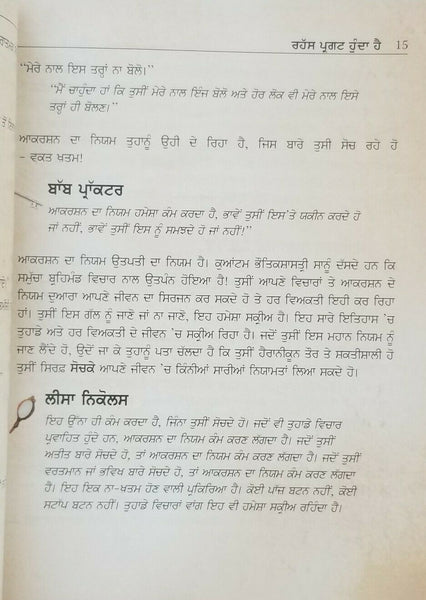 ਰਹੱਸ ਪ੍ਰਗਟ ਹੁੰਦਾ ਹੈ 15
"ਮੇਰੇ ਨਾਲ ਇਸ ਤਰ੍ਹਾਂ ਨਾ ਬੋਲੋ।"
"ਮੈਂ ਚਾਹੁੰਦਾ ਹਾਂ ਕਿ ਤੁਸੀਂ ਮੇਰੇ ਨਾਲ ਇੰਜ ਬੋਲੋ ਅਤੇ ਹੋਰ ਲੋਕ ਵੀ ਮੇਰੇ ਨਾਲ ਇਸੇ
ਤਰ੍ਹਾਂ ਹੀ ਬੋਲਣ।"
ਆਕਰਸ਼ਨ ਦਾ ਨਿਯਮ ਤੁਹਾਨੂੰ ਉਹੀ ਦੇ ਰਿਹਾ ਹੈ, ਜਿਸ ਬਾਰੇ ਤੁਸੀ ਸੋਚ ਰਹੇ ਹੋ
- ਵਕਤ ਖਤਮ!
ਬਾੱਬ ਪ੍ਰਾੱਕਟਰ
ਆਕਰਸ਼ਨ ਦਾ ਨਿਯਮ ਹਮੇਸ਼ਾ ਕੰਮ ਕਰਦਾ ਹੈ, ਭਾਵੇਂ ਤੁਸੀਂ ਇਸ'ਤੇ ਯਕੀਨ ਕਰਦੇ ਹੋ
ਜਾਂ ਨਹੀਂ, ਭਾਵੇਂ ਤੁਸੀਂ ਇਸ ਨੂੰ ਸਮਝਦੇ ਹੋ ਜਾਂ ਨਹੀਂ!"
ਆਕਰਸ਼ਨ ਦਾ ਨਿਯਮ ਉਤਪਤੀ ਦਾ ਨਿਯਮ ਹੈ। ਕੁਆਂਟਮ ਭੌਤਿਕਸ਼ਾਸਤ੍ਰੀ ਸਾਨੂੰ ਦੱਸਦੇ ਹਨ ਕਿ
ਸਮੁੱਚਾ ਬ੍ਰਹਿਮੰਡ ਵਿਚਾਰ ਨਾਲ ਉਤਪੰਨ ਹੋਇਆ ਹੈ! ਤੁਸੀਂ ਆਪਣੇ ਵਿਚਾਰਾਂ ਤੇ ਆਕਰਸ਼ਨ ਦੇ
ਨਿਯਮ ਦੁਆਰਾ ਆਪਣੇ ਜੀਵਨ ਦਾ ਸਿਰਜਨ ਕਰ ਸਕਦੇ ਹੋ ਤੇ ਹਰ ਵਿਅਕਤੀ ਇਹੀ ਕਰ ਰਿਹਾ
ਹਾਂ। ਤੁਸੀਂ ਇਸ ਗੱਲ ਨੂੰ ਜਾਣੋ ਜਾਂ ਨਾ ਜਾਣੋ, ਇਹ ਹਮੇਸ਼ਾ ਸਕ੍ਰੀਅ ਹੈ। ਇਹ ਸਾਰੇ ਇਤਿਹਾਸ 'ਚ
ਤੁਹਾਡੇ ਅਤੇ ਹਰ ਵਿਅਕਤੀ ਦੇ ਜੀਵਨ 'ਚ ਸਕ੍ਰੀਅ ਰਿਹਾ ਹੈ। ਜਦੋਂ ਤੁਸੀਂ ਇਸ ਮਹਾਨ ਨਿਯਮ ਨੂੰ
ਜਾਣ ਲੈਂਦੇ ਹੋ, ਉਦੋਂ ਜਾ ਕੇ ਤੁਹਾਨੂੰ ਪਤਾ ਚੱਲਦਾ ਹੈ ਕਿ ਤੁਸੀਂ ਹੈਰਾਨੀਕੁਨ ਤੌਰ ਤੇ ਸ਼ਕਤੀਸ਼ਾਲੀ ਹੋ
ਤੁਸੀਂ ਸਿਰਫ਼ ਸੋਚਕੇ ਆਪਣੇ ਜੀਵਨ 'ਚ ਕਿੰਨੀਆਂ ਸਾਰੀਆਂ ਨਿਯਾਮਤਾਂ ਲਿਆ ਸਕਦੇ ਹੋ।
ਲੀਸਾ ਨਿਕੋਲਸ
ਇਹ ਉੱਨਾ ਹੀ ਕੰਮ ਕਰਦਾ ਹੈ, ਜਿੰਨਾ ਤੁਸੀਂ ਸੋਚਦੇ ਹੋ। ਜਦੋਂ ਵੀ ਤੁਹਾਡੇ ਵਿਚਾਰ
ਪ੍ਰਵਾਹਿਤ ਹੁੰਦੇ ਹਨ, ਆਕਰਸ਼ਨ ਦਾ ਨਿਯਮ ਕੰਮ ਕਰਣ ਲੱਗਦਾ ਹੈ। ਜਦੋਂ ਤੁਸੀਂ
ਅਤੀਤ ਬਾਰੇ ਸੋਚਦੇ ਹੋ, ਤਾਂ ਆਕਰਸ਼ਨ ਦਾ ਨਿਯਮ ਕੰਮ ਕਰਣ ਲੱਗਦਾ ਹੈ। ਜਦੋਂ ਤੁਸੀਂ
ਵਰਤਮਾਨ ਜਾਂ ਭਵਿਖ ਬਾਰੇ ਸੋਚਦੇ ਹੋ, ਤਾਂ ਆਕਰਸ਼ਨ ਦਾ ਨਿਯਮ ਕੰਮ ਕਰਣ ਲੱਗਦਾ
ਹੈ। ਇਹ ਇਕ ਨਾ-ਖਤਮ ਹੋਣ ਵਾਲੀ ਪ੍ਰਕਿਰਿਆ ਹੈ। ਕੋਈ ਪਾੱਜ਼ ਬਟਨ ਨਹੀਂ, ਕੋਈ
ਸਟਾੱਪ ਬਟਨ ਨਹੀਂ। ਤੁਹਾਡੇ ਵਿਚਾਰਾਂ ਵਾਂਗ ਇਹ ਵੀ ਹਮੇਸ਼ਾ ਸਕ੍ਰੀਅ ਰਹਿੰਦਾ ਹੈ।